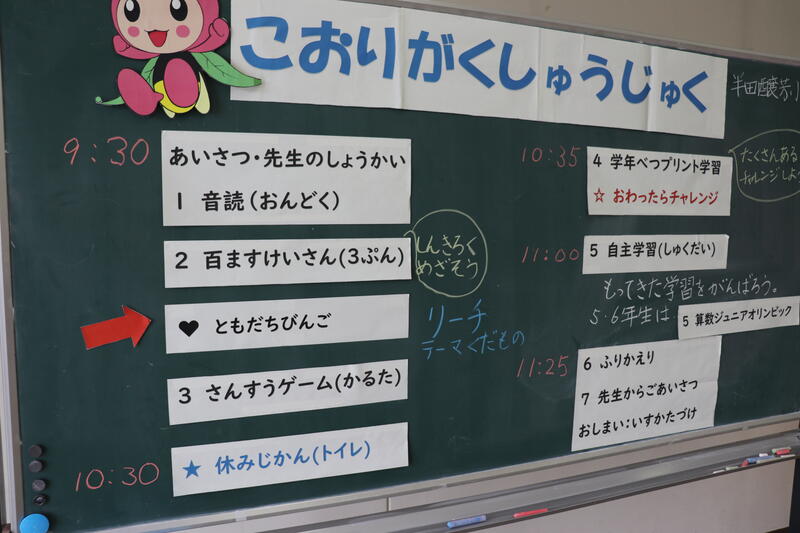 こおりがくしゅうじゅく
9:30
あいさつ・先生のしょうかい
1 音読(おんどく)
2 百ますけいさん(3ぷん)
しんきろく
めざそう
♥ ともだちびんご
リーチ
テーマくだもの
3 さんすうゲーム(かるた)
10:30
★ 休みじかん(トイレ)
10:35
4 学年べつプリント学習
☆ おわったらチャレンジ
たくさんある
チャレンジしよう
11:00
5 自主学習(しゅくだい)
もってきた学習をがんばろう。
5・6年生は
5 算数ジュニアオリンピック
11:25
6 ふりかえり
7 先生からごあいさつ
おしまい:いすかたづけ